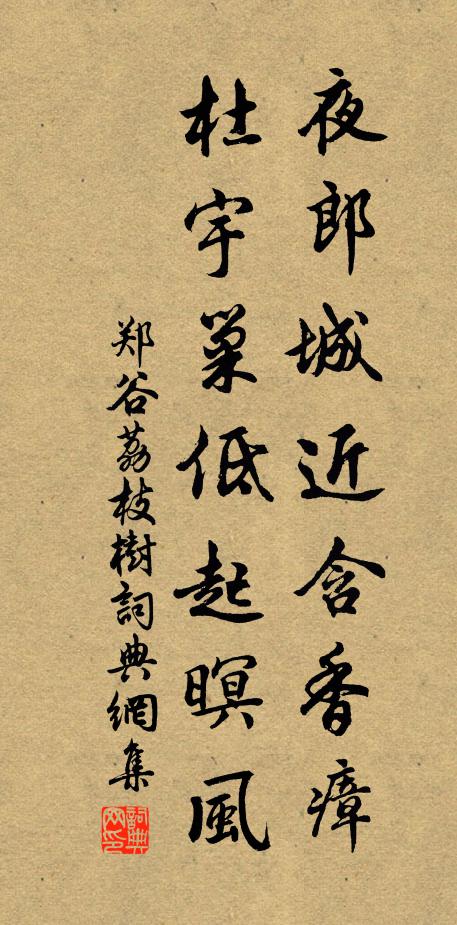 夜郎城近含香瘴
杜宇巢低起暝風
郑谷荔枝樹詞典網集
詞典网印